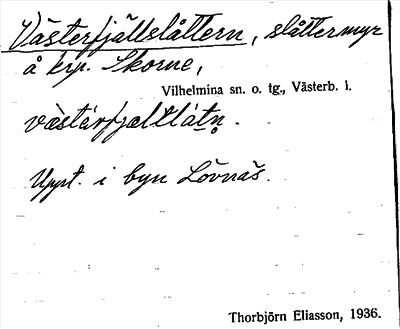 Västerfjällslåttern, slåttermyr
å krp. Skorne,
Vilhelmina sn. o. tg., Västerb. l.
västärfjeltlåtn.
Uppt. i byn Lövnäs.
Thorbjörn Eliasson, 1936.